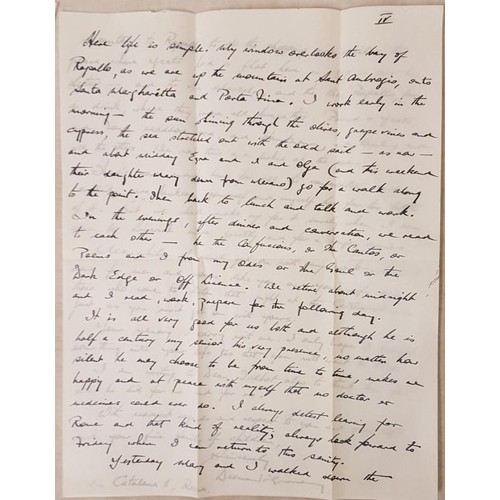 IV
Here life is simple. My window overlooks the bay of
Rapallo, as we are up the mountain at Sant Ambrogio, onto
Santa Margharitta and Porta Fino. I work early in the
morning — the sun shining through the olives, grape vines and
cypress, the sea stretched out with the odd sail — as now —
and about midday Ezra and I and Olga (and this weekend
their daughter Mary down from Merano) go for a walk along
to the point. Then back to lunch and talk and work.
In the evenings, after dinner and conversation, we read
to each other — he the Confucious, or The Cantos, or
Poems and I from my Odes or the Gaul or the
Dark Edge or Off Licence. We retire about midnight
and I read, work, prepare for the following day.
It is all very good for us both and although he is
half a century my senior his very presence, no matter how
silent he may choose to be from time to time, makes me
happy and at peace with myself that no doctor or
medicines could ever do. I always detest leaving for
Rome and that kind of reality, always look forward to
Friday when I can return to this sanity.
Yesterday Mary and I walked down the